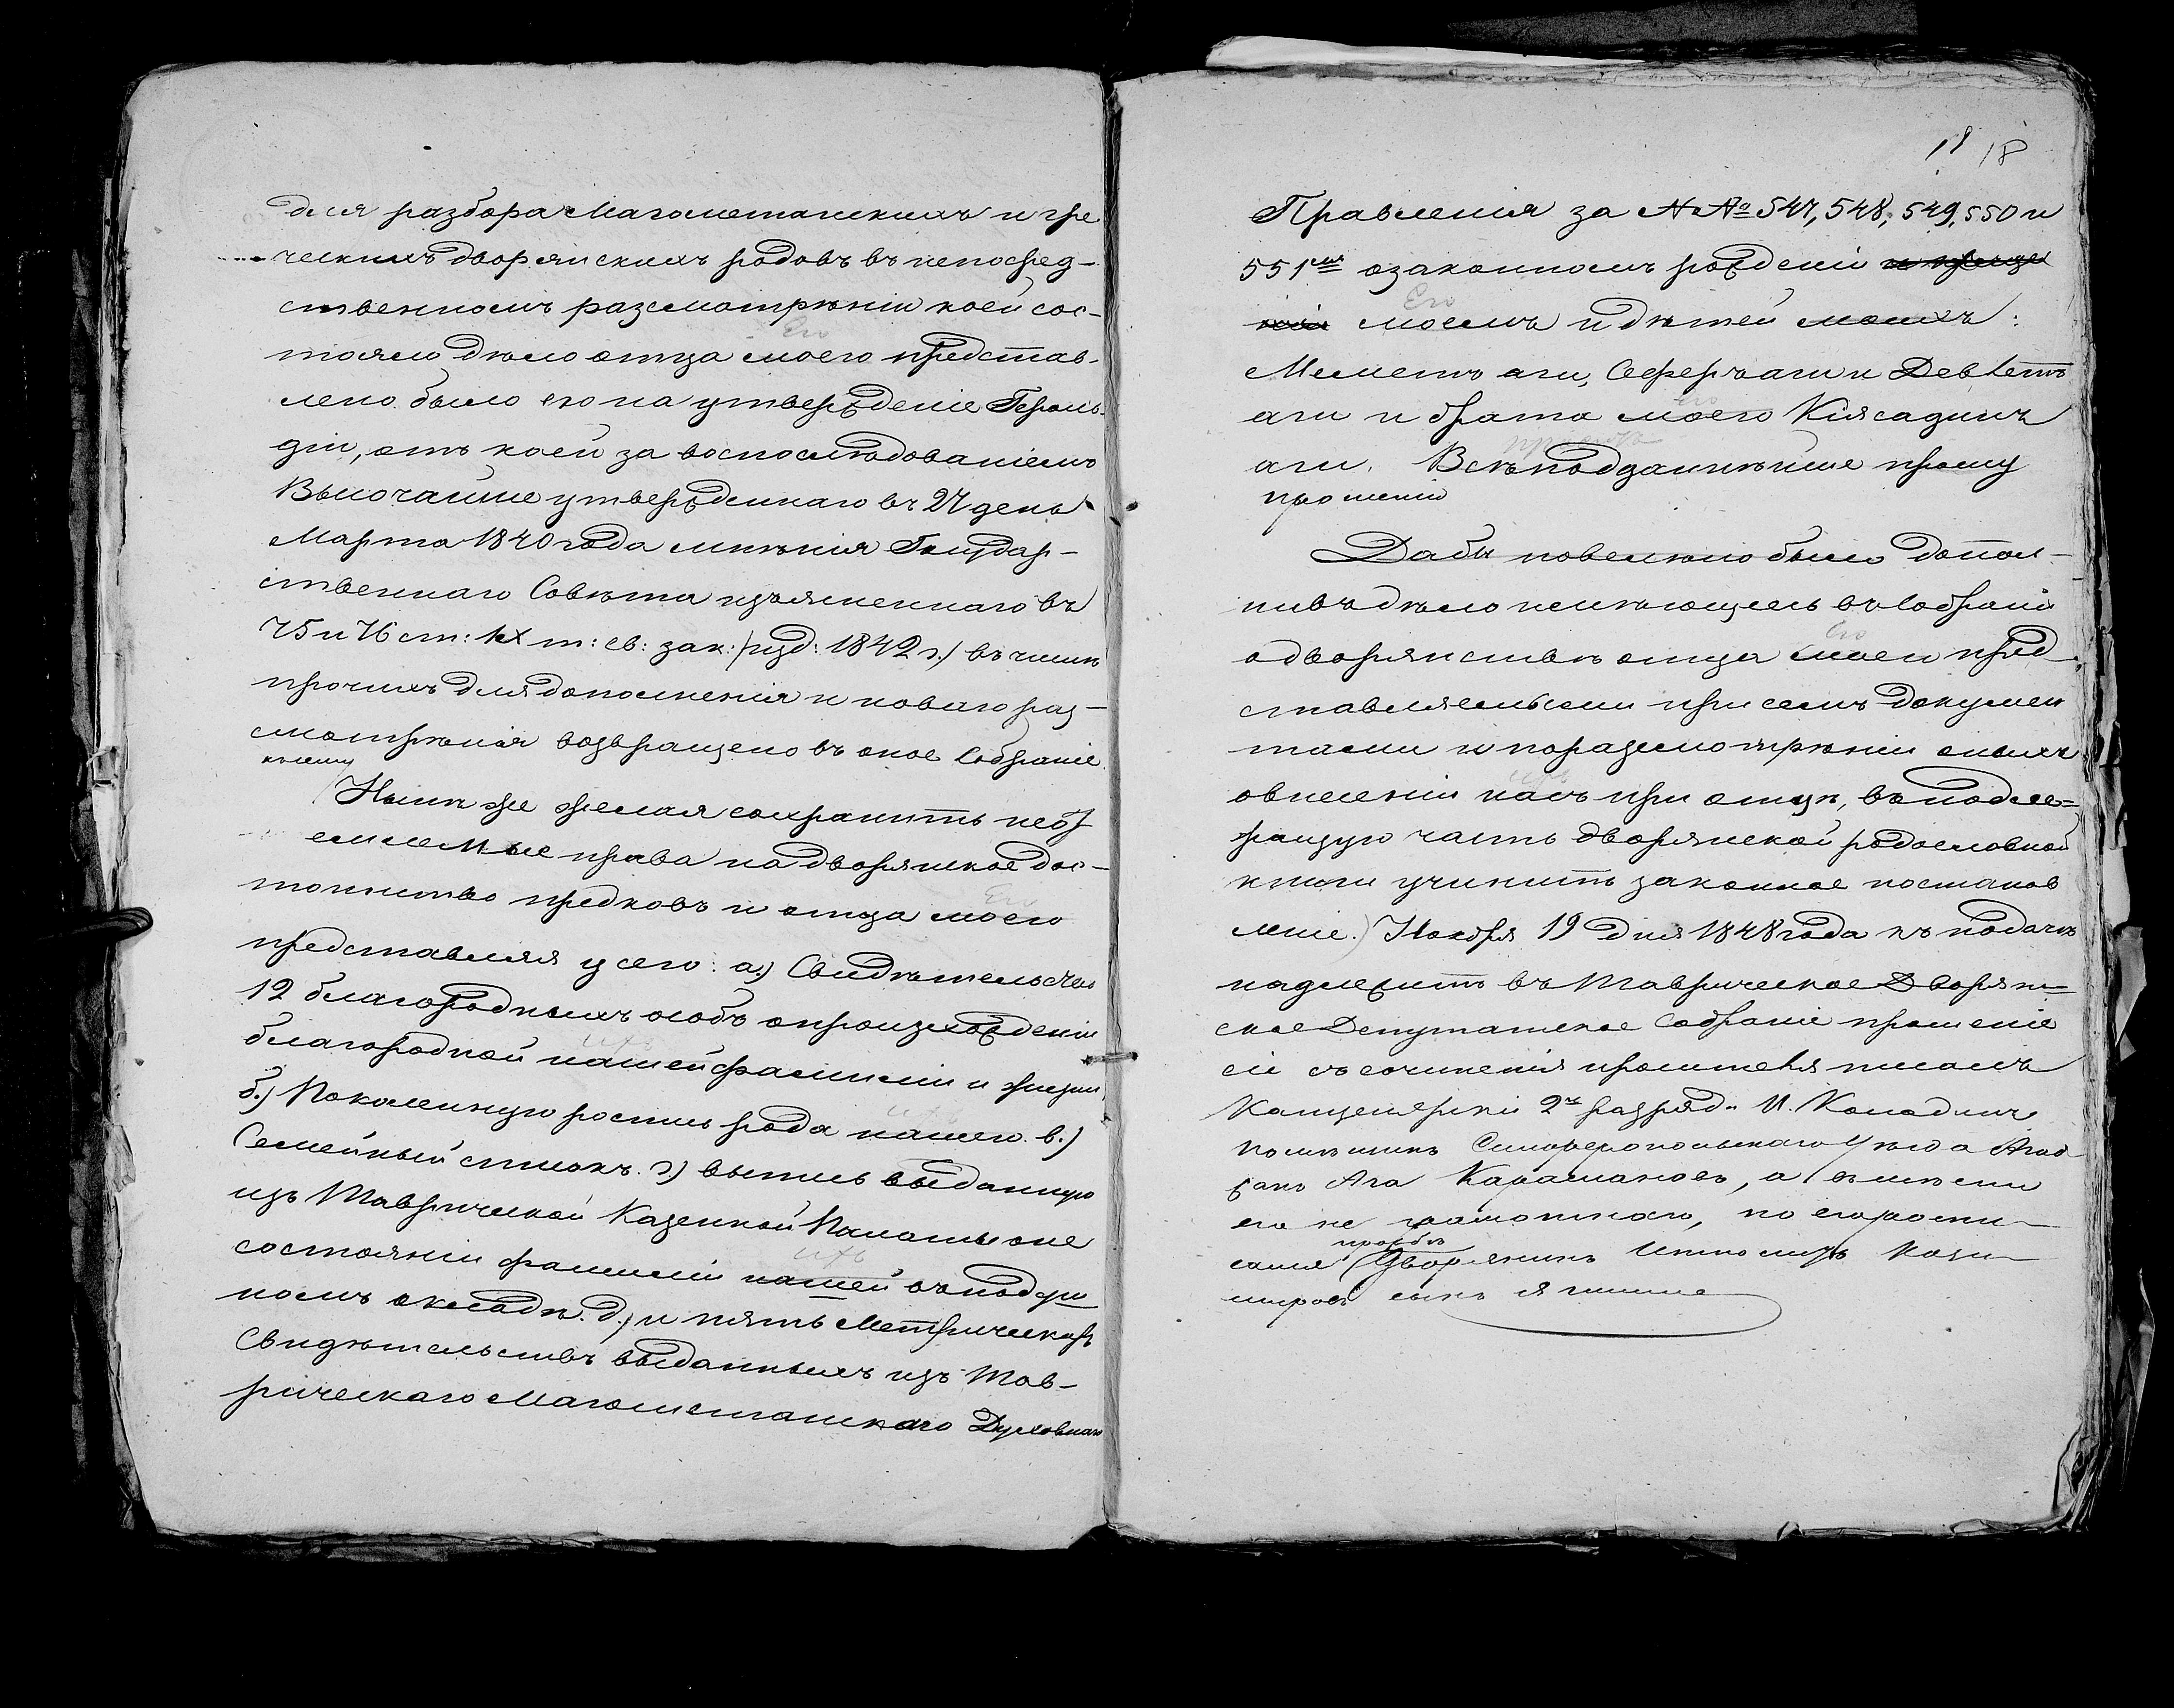 для разбора Магометанскихъ и гре
ческихъ дворянскихъ родовъ въ непосред-
ственномъ разсмотрѣніи коей сос-
Его
тояло дѣло отца моего представ-
лено было ею на утвержденіе Героль-
діи, отъ коей за воспослѣдованіемъ
Высочайше утвержденнаго въ 27 день
Марта 1840 года мнѣнія Государ-
ственнаго Совѣта изъясненнаго въ
75 и 76 ст: IX т: св: зак: /изд: 1842 г./ въ числѣ
прочихъ для дополненія и новаго раз-
смотрѣнія возвращено въ оное Собраніе.
къ сему
Нынѣ же желая сохранить неотъ
емлемые права на дворянское дос-
Его
тоинство предковъ и отца моего
представляя у сего: а.) Свидѣтельство
12 благородныхъ особъ о происхожденіи
ихъ
благородной нашей фамиліи и жизни,
б.) Поколенную роспись рода нашего. в.)
Семейный списокъ. г.) выпись выданную
изъ Таврической Казенной Палаты о не
ихъ
состояніи фамиліи нашей въ подуш
номъ окладѣ. д.) и пять Метрическихъ
Свидѣтельствъ выданныхъ изъ Тав-
рическаго Магометанскаго Духовнаго
18 18
Правленія за №№ 547, 548, 549, 550 и
551мъ о законномъ рожденіи и креще
Его
ніи моемъ и дѣтей моихъ:
Меметъ аги, Сеферъ аги и Девлетъ
Его
аги и брата моего Киясадинъ
аги. Всѣподданнѣйше прошу
прошеніи
Дабы повелѣно было допол-
нивъ дѣло имѣющееся въ Собраніи
Его
о дворянствѣ отца моего пред
ставляемыми при семъ докумен
тами и по разсмотрѣніи оныхъ
ихъ
о внесеніи насъ при отцѣ, въ подле=
жащую часть дворянской родословной
книги учинить законное постанов
леніе.) Ноября 19 дня 1848 года къ подачѣ
надлежитъ въ Таврическое Дворян=
ское Депутатское Собраніе прошеніе
сіе съ сочиненія просителя писалъ
Канцелярскій 2го разряд. И.
помѣщикъ Симферопольскаго Уѣзда
Ага Карамановъ, а вмѣсто
его не грамотнаго, по его
просьбѣ
Дворянинъ
сынъ